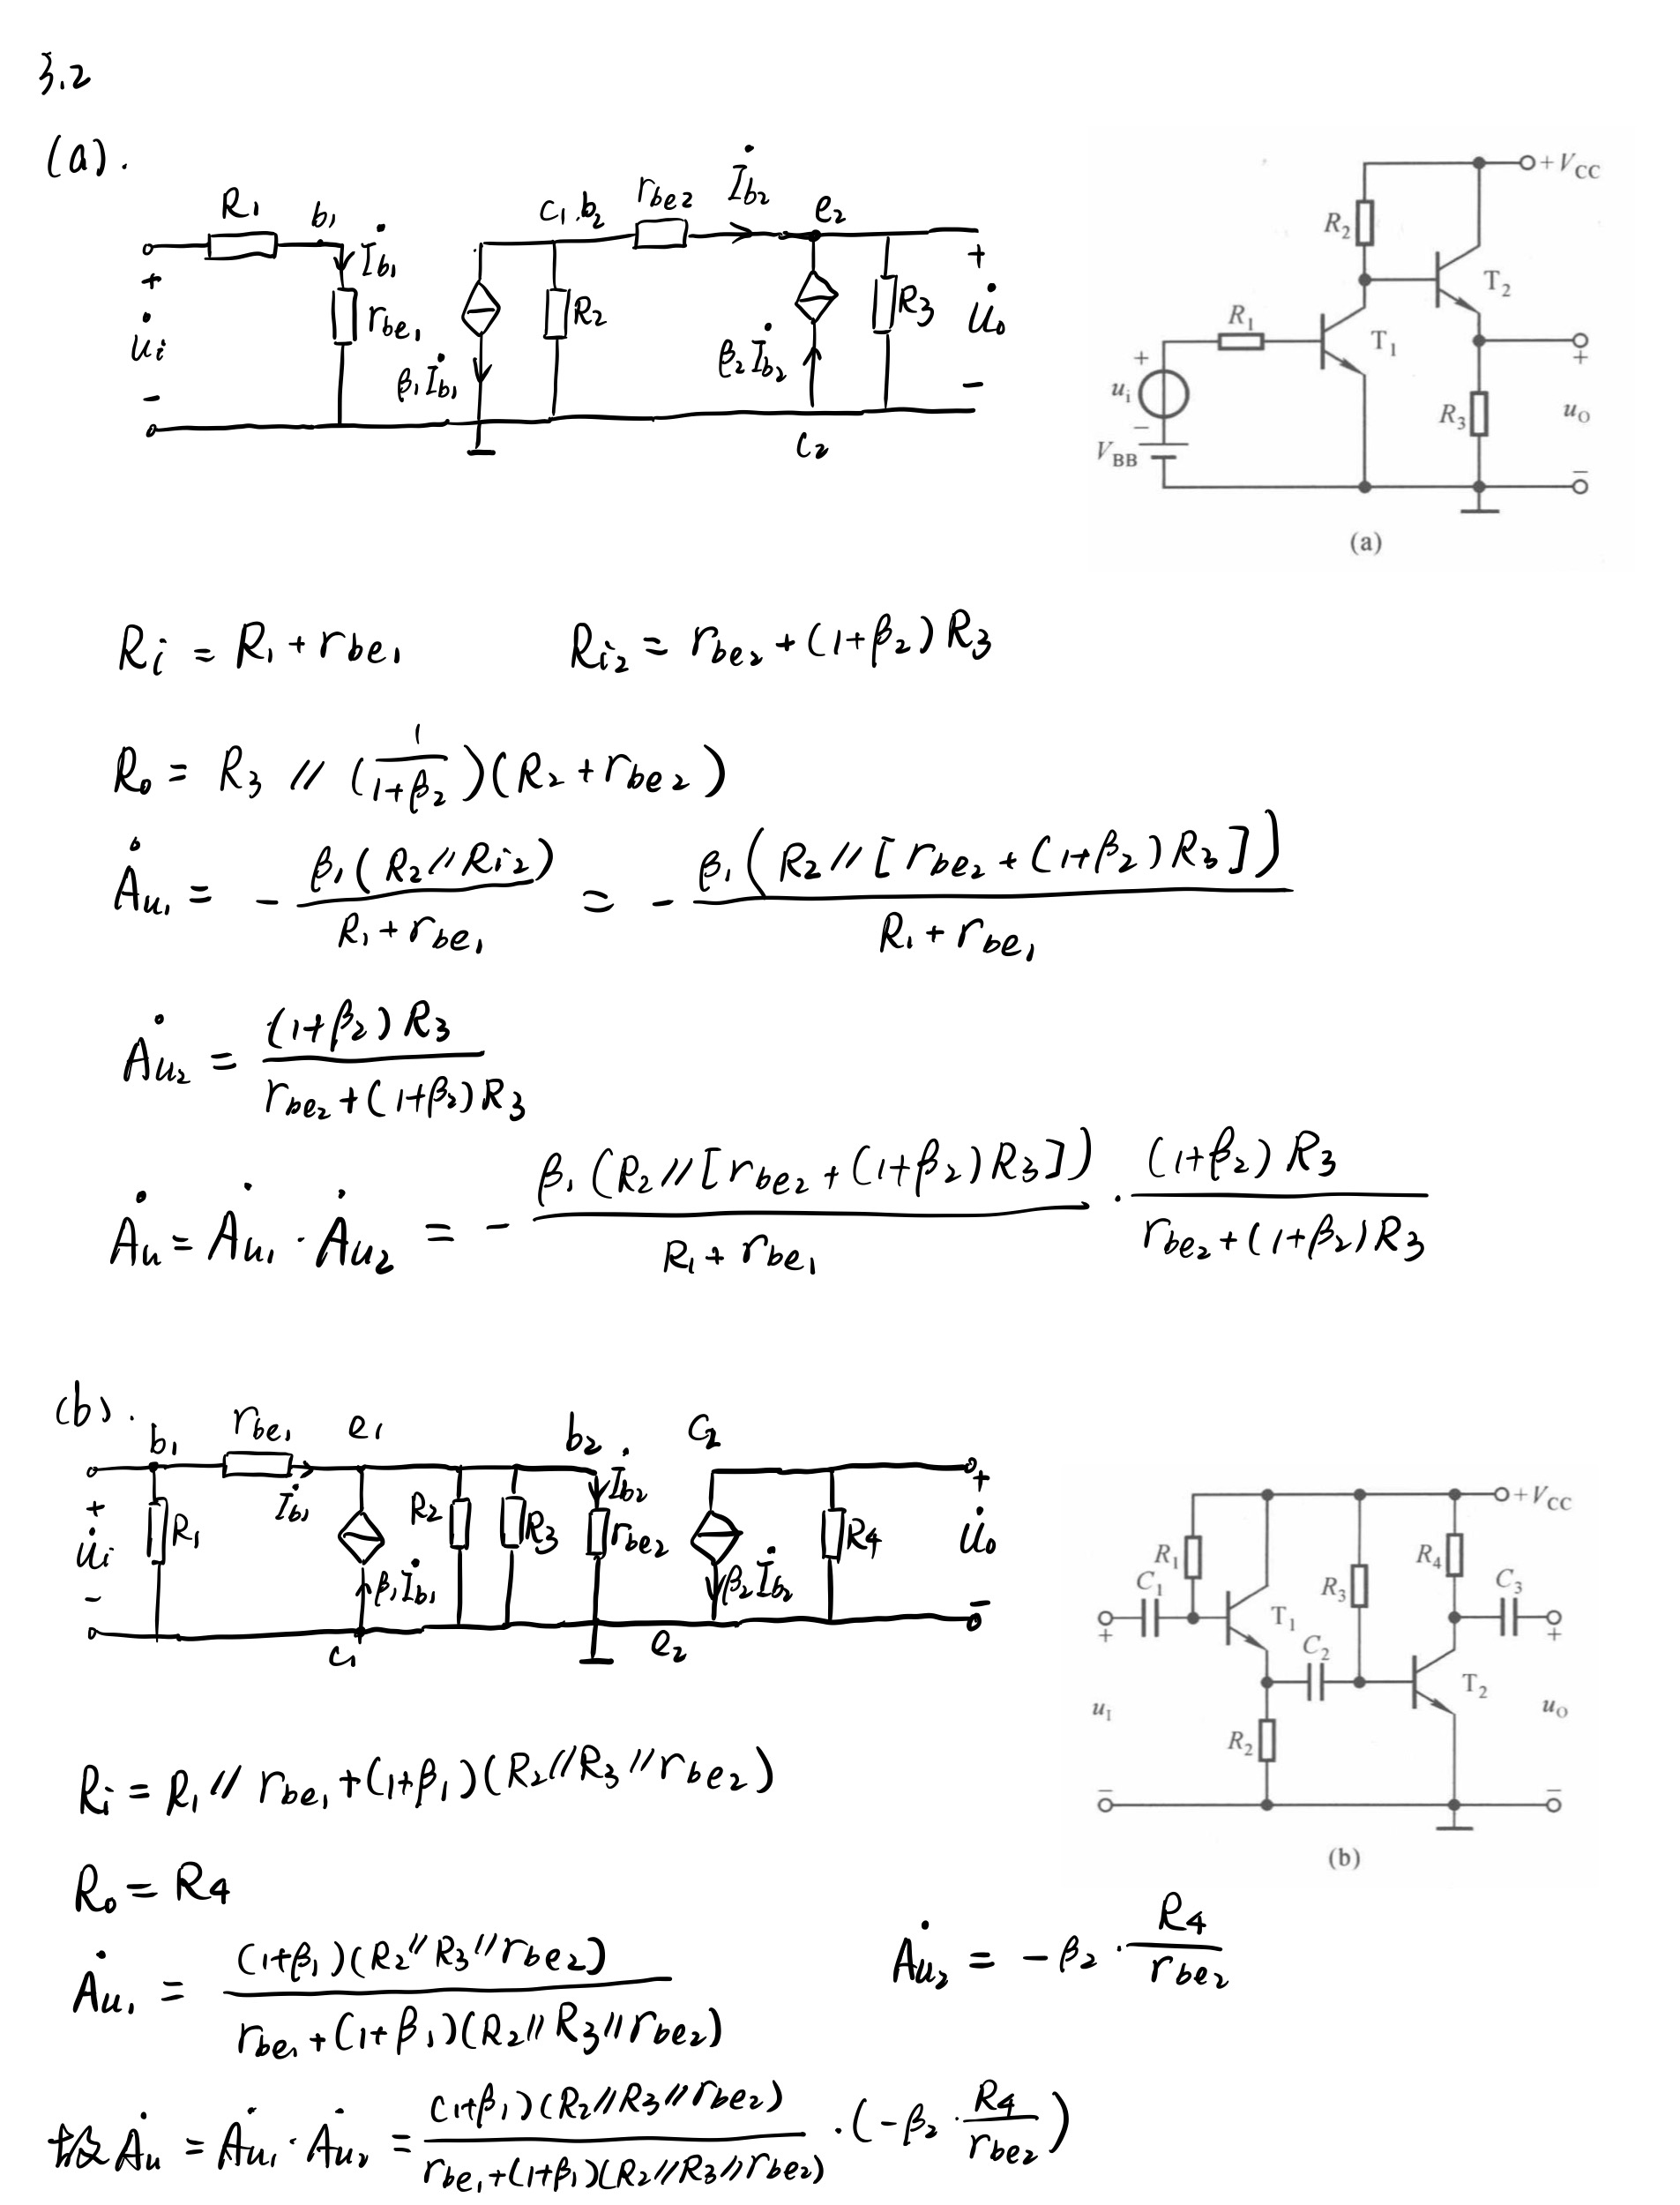 3.2
(a).
R₁ b₁ İb₁ rbe₁ + u̇i - β₁İb₁ R₂ c₁.b₂ rbe₂ İb₂ e₂ β₂İb₂ R₃ + u̇o - c₂
+VCC
R₂
T₂
R₁
T₁
+
ui
-
VBB
R₃
+
uO
-
(a)
Ri = R₁+rbe₁ Ri₂ = rbe₂+(1+β₂)R₃
Ro = R₃ // (1/(1+β₂))(R₂+rbe₂)
Ȧu₁ = - β₁(R₂//Ri₂)/(R₁+rbe₁) = - β₁(R₂//[rbe₂+(1+β₂)R₃])/(R₁+rbe₁)
Ȧu₂ = (1+β₂)R₃/(rbe₂+(1+β₂)R₃)
Ȧu = Ȧu₁·Ȧu₂ = - β₁(R₂//[rbe₂+(1+β₂)R₃])/(R₁+rbe₁) · (1+β₂)R₃/(rbe₂+(1+β₂)R₃)
(b).
b₁ rbe₁ e₁ b₂ c₂
+ u̇i - R₁ İb₁ β₁İb₁ R₂ R₃ İb₂ rbe₂ β₂İb₂ R₄ + u̇o -
c₁ e₂
+VCC
R₁ R₃ R₄
C₁ C₃
T₁
C₂
T₂
+ +
uI uO
R₂
- -
(b)
Ri = R₁//rbe₁+(1+β₁)(R₂//R₃//rbe₂)
Ro = R₄
Ȧu₁ = (1+β₁)(R₂//R₃//rbe₂)/(rbe₁+(1+β₁)(R₂//R₃//rbe₂)) Ȧu₂ = -β₂·R₄/rbe₂
故Ȧu = Ȧu₁·Ȧu₂ = (1+β₁)(R₂//R₃//rbe₂)/(rbe₁+(1+β₁)(R₂//R₃//rbe₂)) ·(-β₂·R₄/rbe₂)